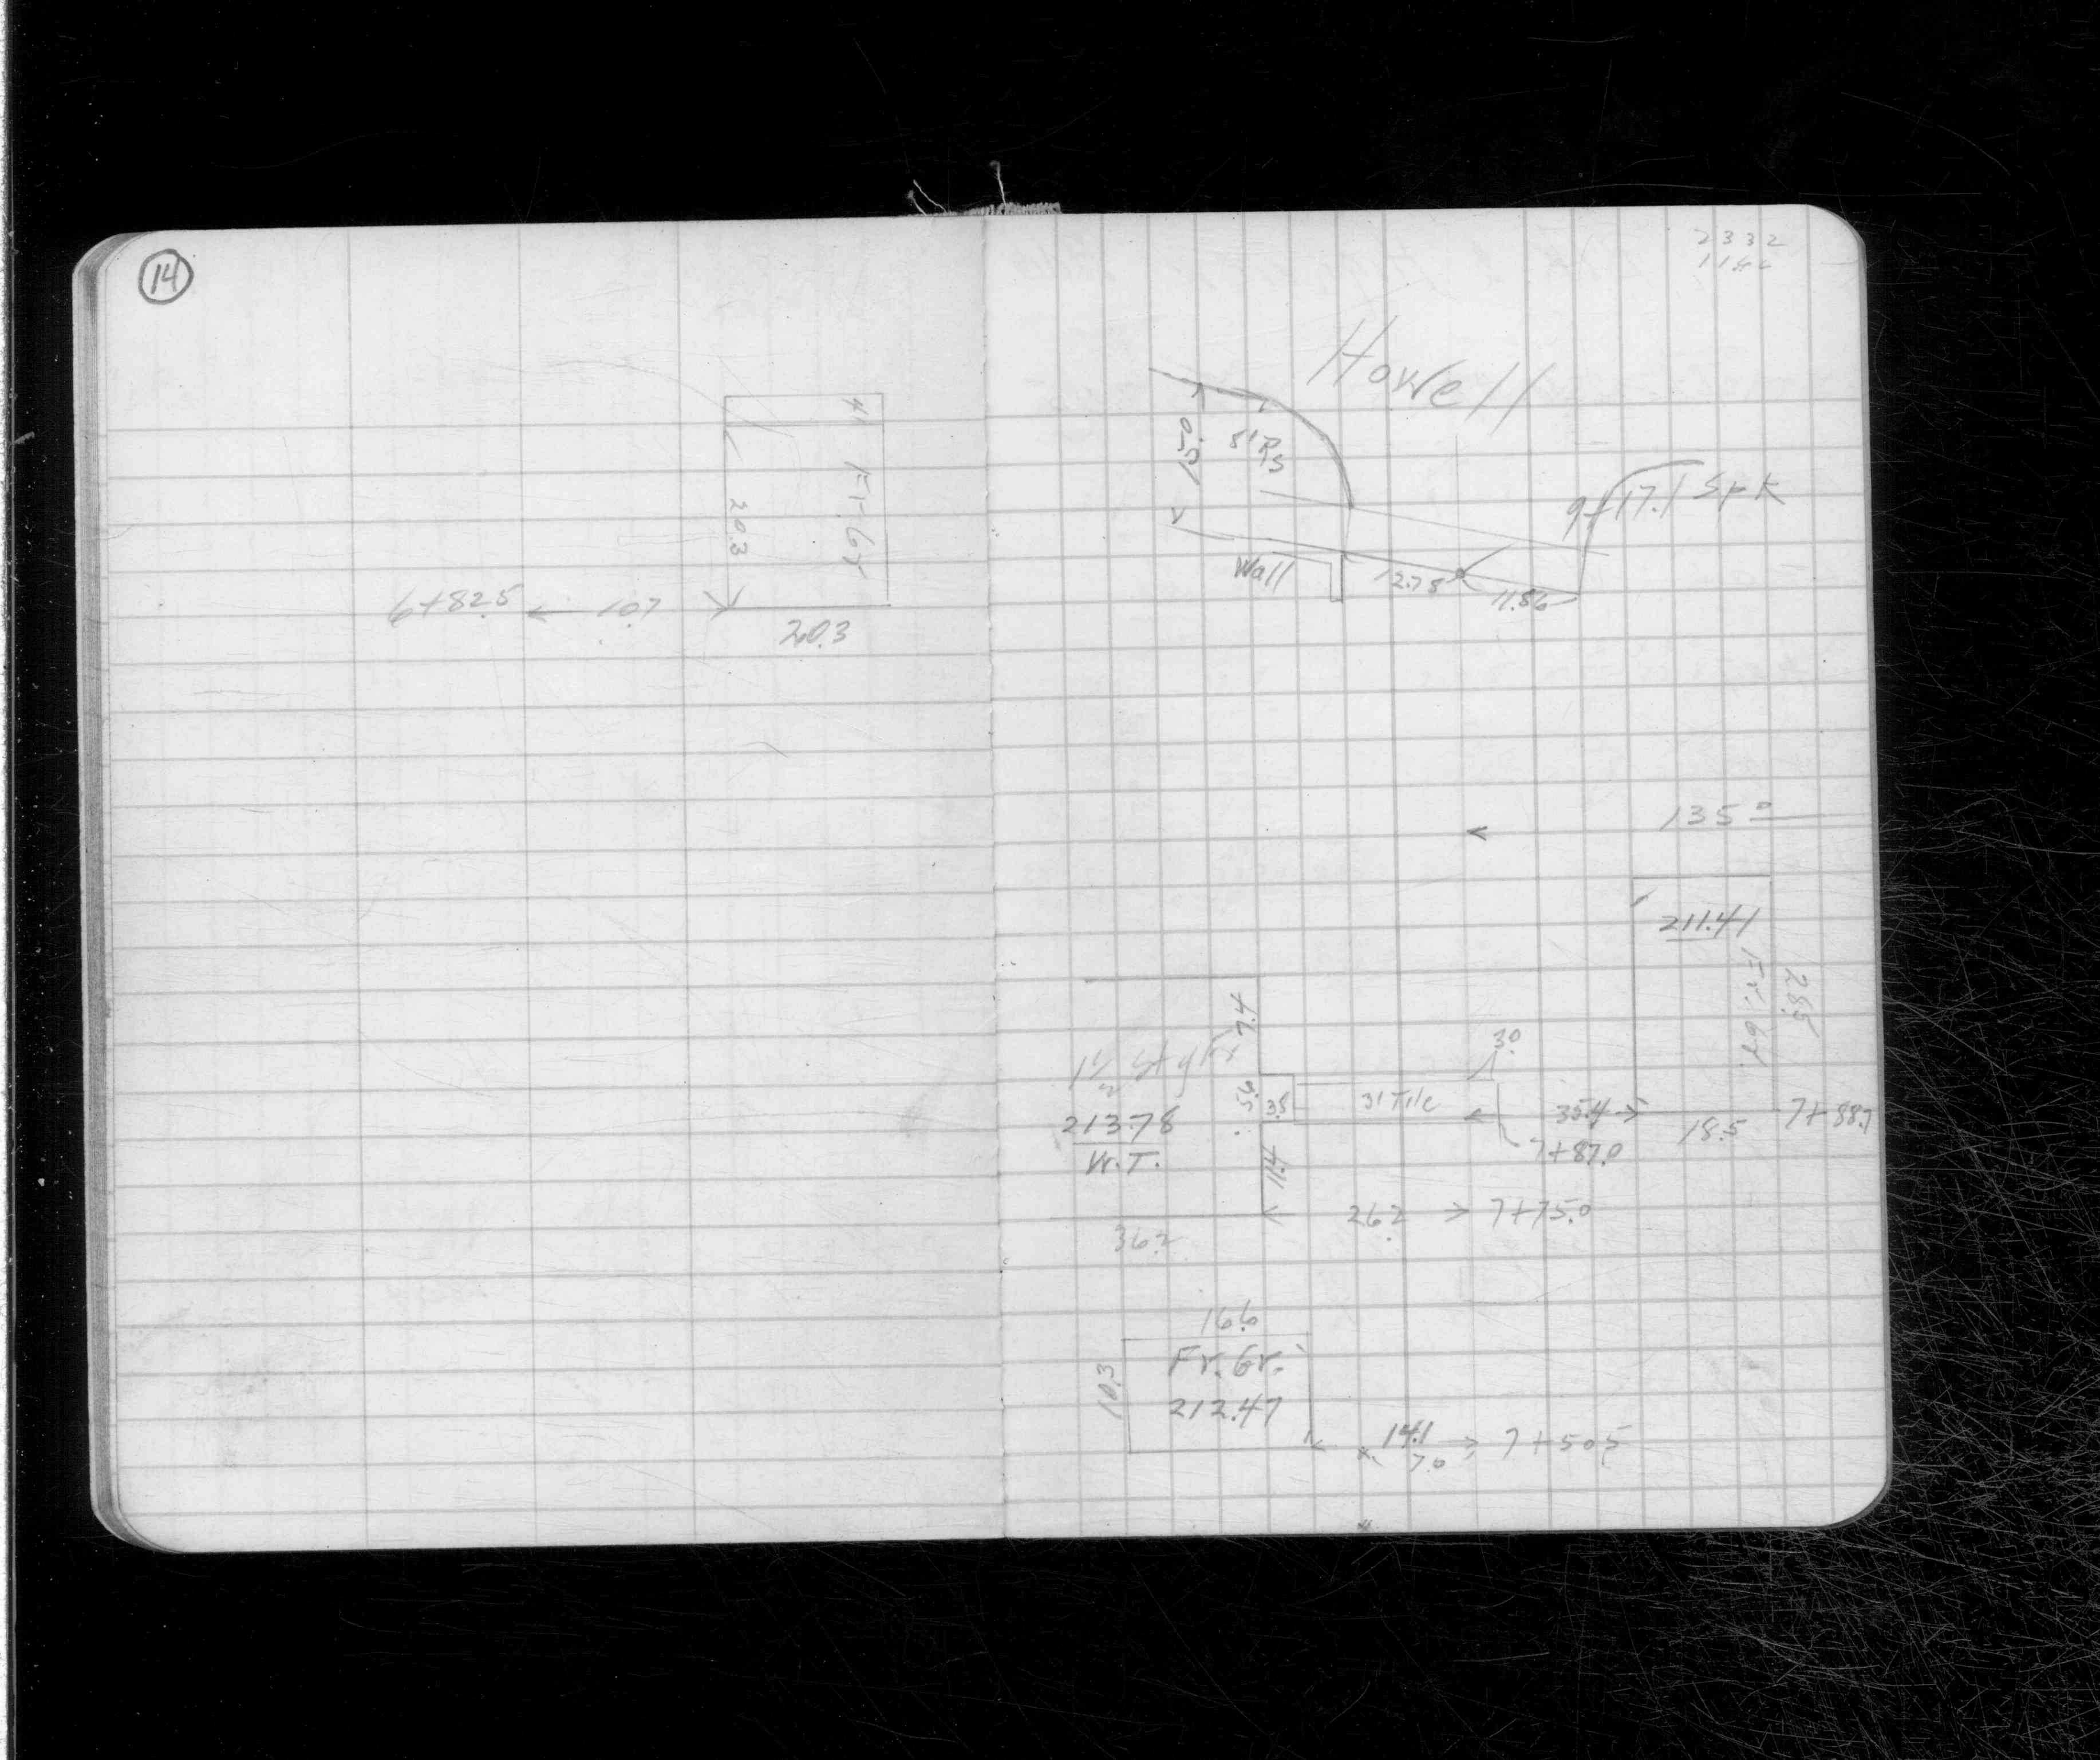 14
Fr Gr
20.3
6+82.5
10.7
20.3
2332
Howell
15.0
9+17.1 Spk
Wall
12.78
11.56
135 0
211.41
Fr. Gr.
28.5
7.4
1 1/2 Sty Fr
30
5.6
3.8
31 Tile
35.4
18.5
7+88.7
213.78
W.T.
7+87.0
11.4
26.2
7+75.0
36.2
16.6
Fr. Gr.
10.3
212.47
14.1
7+50.5
7.0